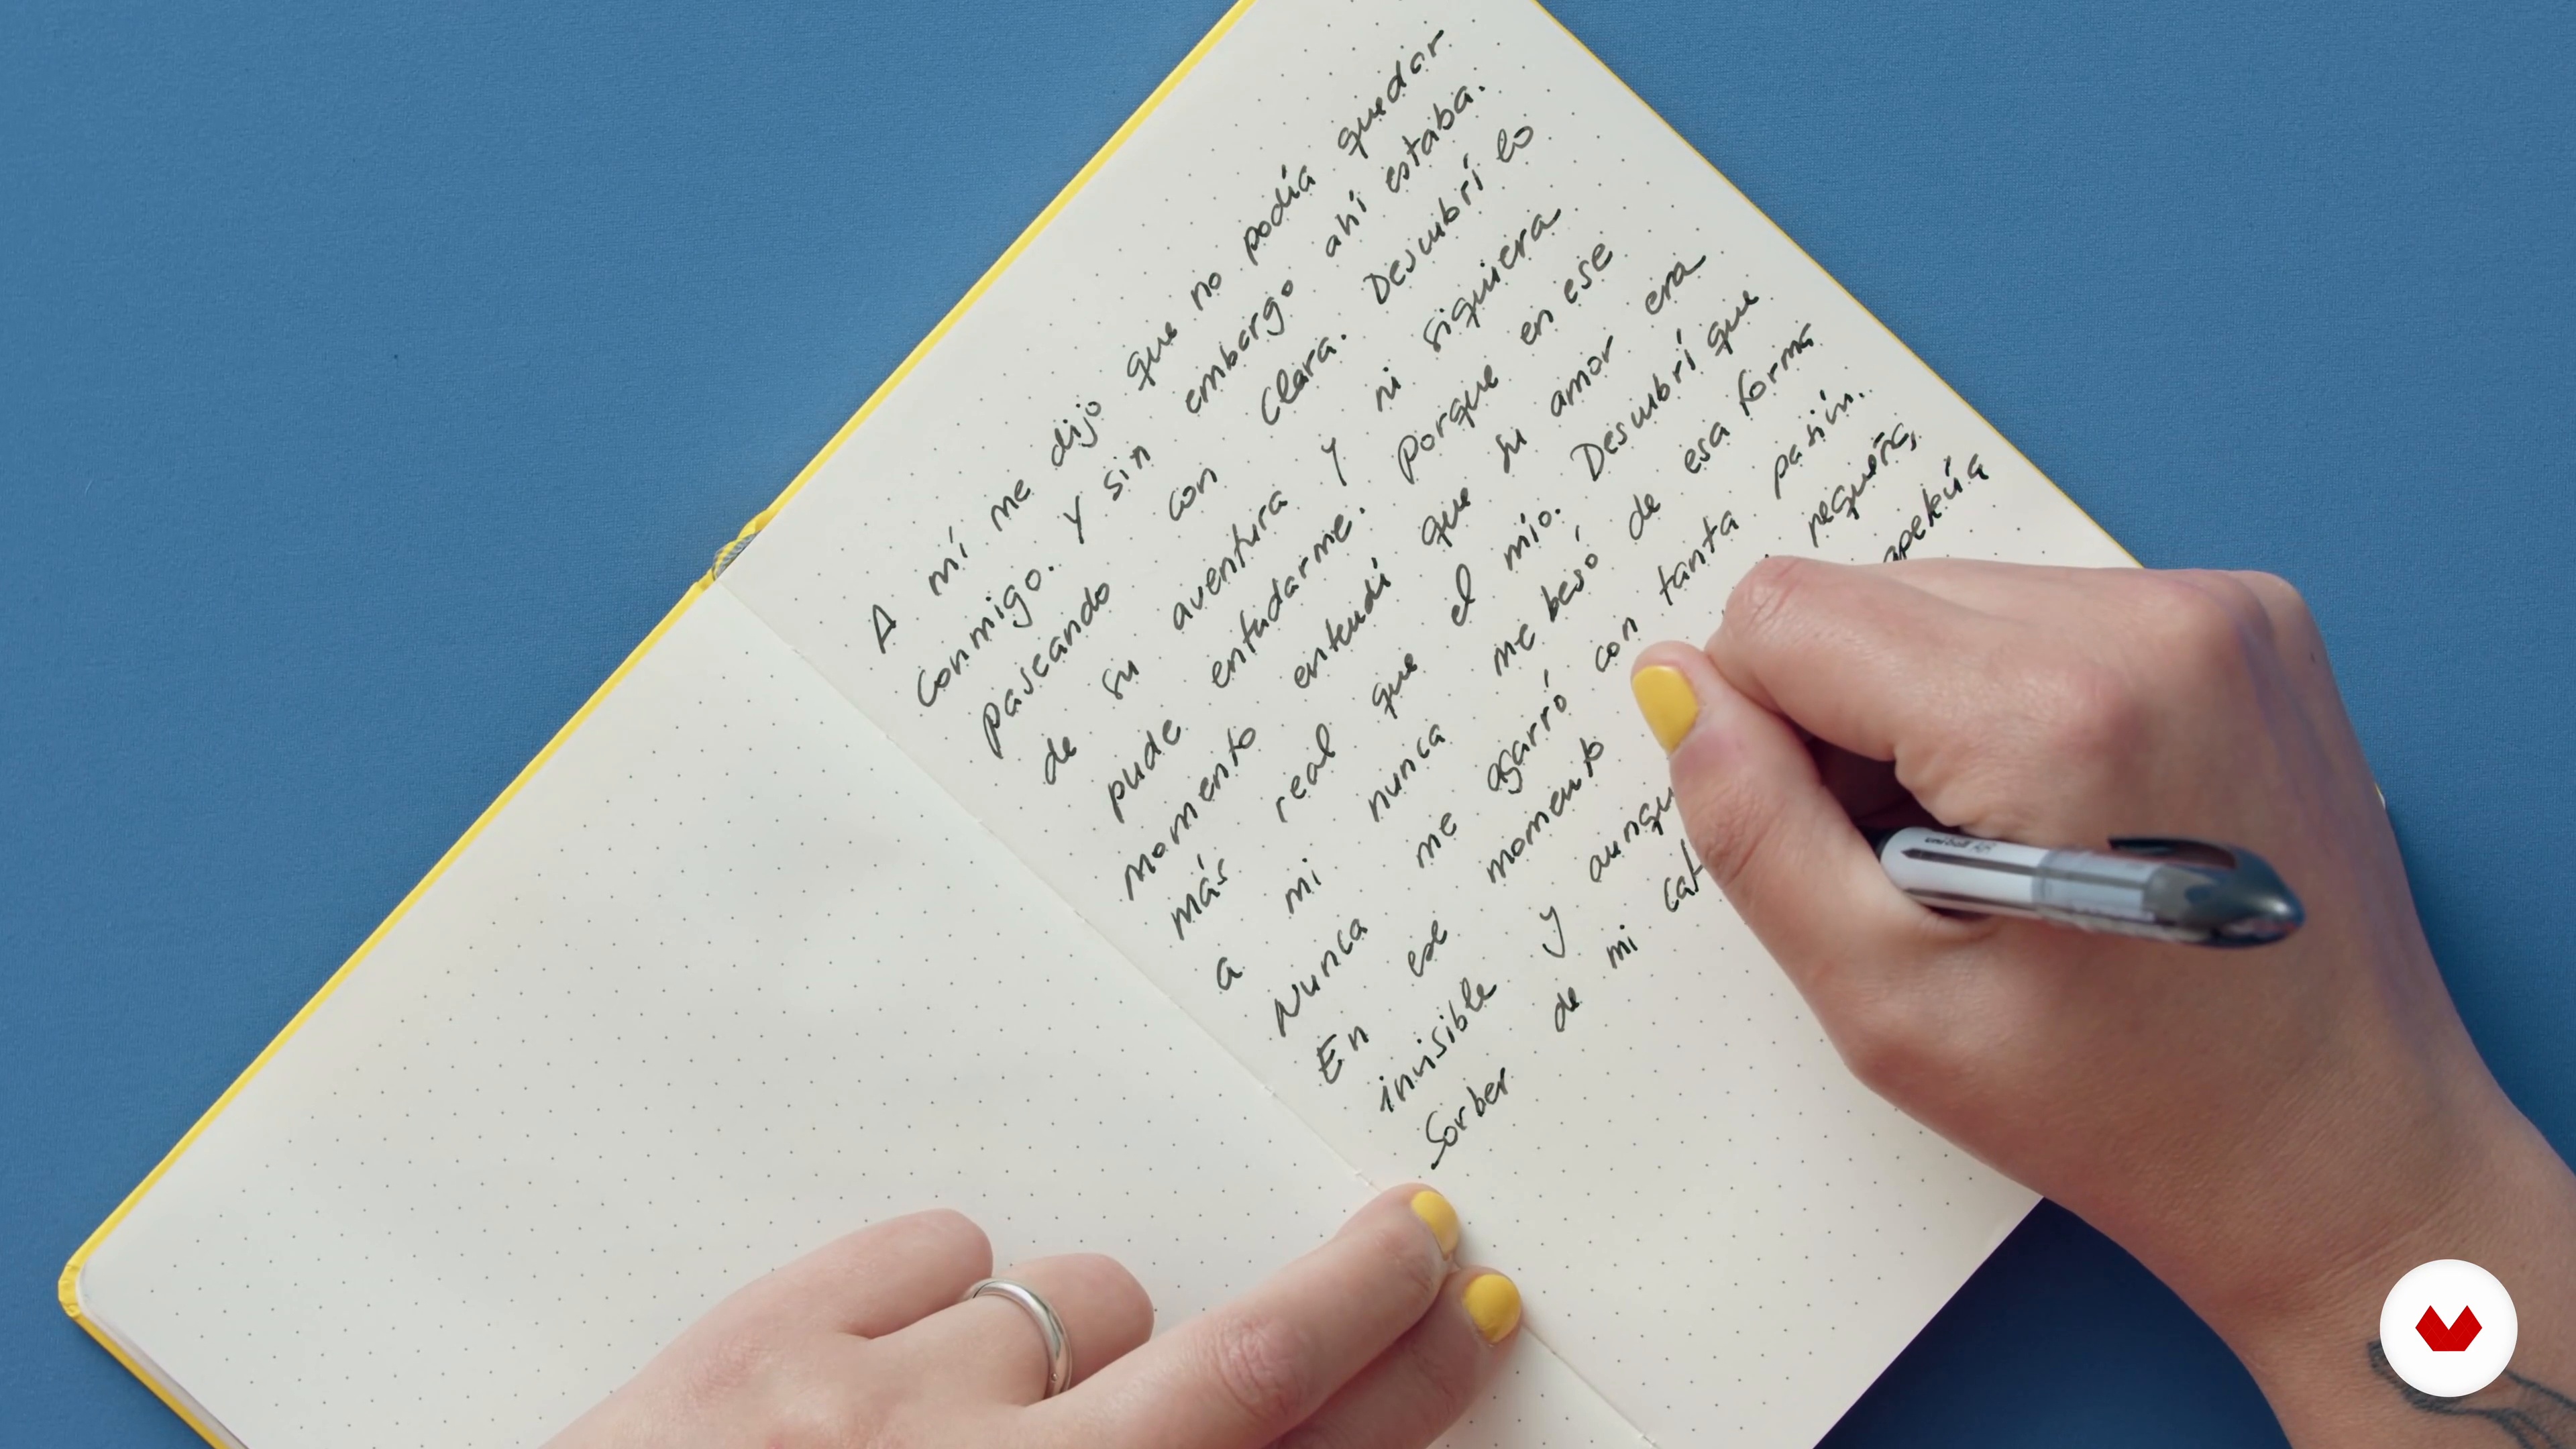 A mí me dijo que no podía quedar
conmigo. Y sin embargo ahí estaba.
paseando con Clara. Descubrí lo
de su aventura y ni siquiera
pude enfadarme. Porque en ese
momento entendí que su amor era
más real que el mío. Descubrí que
a mi nunca me besó de esa forma
Nunca me agarró con tanta pasión.
En ese momento pequeña,
invisible y apetecía
sorber de mi